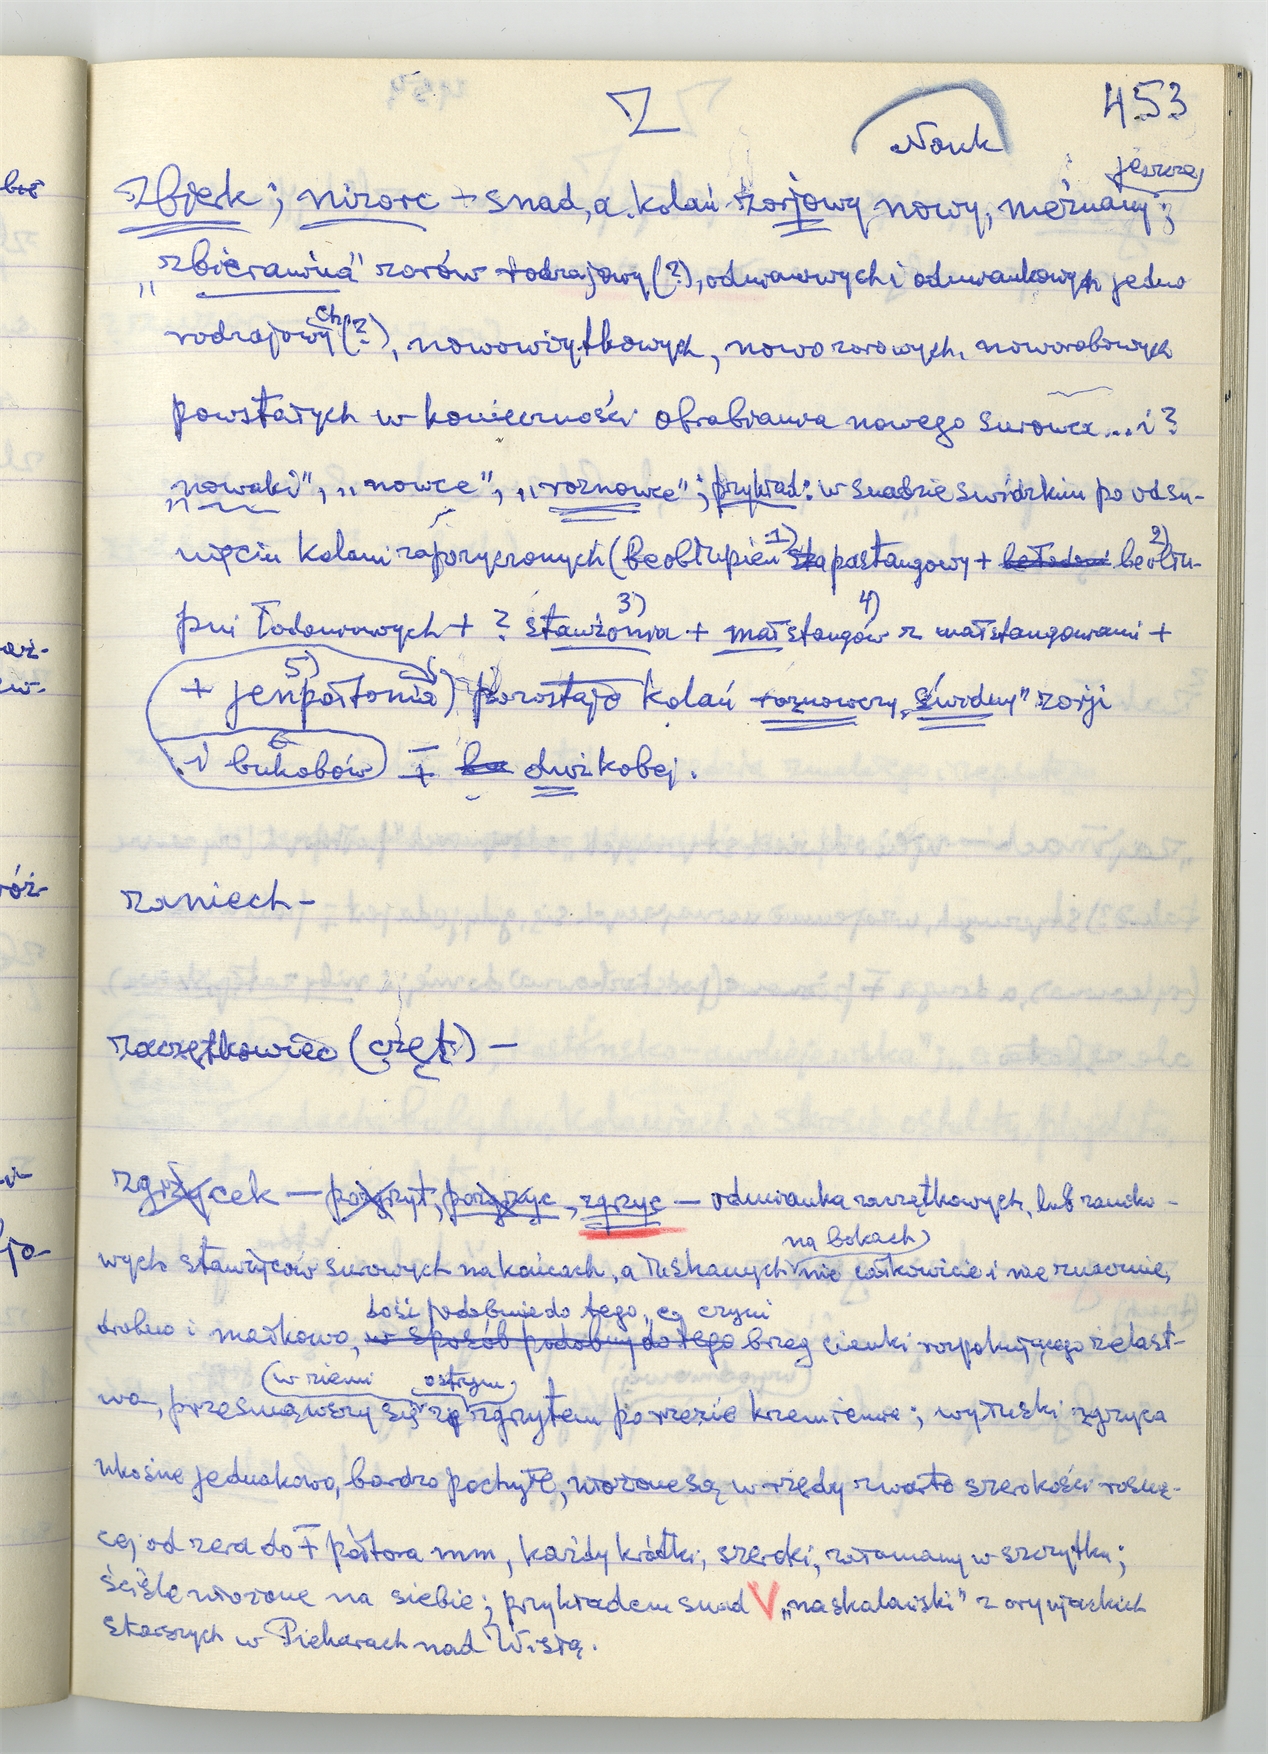 Z
453
Nouk
jeszcze
zbjerk; nizorc + snad, a. kolań zorjowy nowy, nieznany;
„zbieranina" zorów rodzajowy (?), odmianowych i odmiankowych jedno
rodzajowych (?), nowowiytkowych, nowozorowych, noworobowych
powstałych w konieczności obrabiania nowego surowca...i?
„nowaki", „nowce", „roznowce"; przykład: w snadzie świdzkim po odsu-
nięciu kolani zapożyczonych (beobłupień 1) pastangowy + 2) beobłu-
pni łodonowych + ? 3) stawżonia + 4) małstangów z małstangowami +
+ 5) jenpołtonia) pozostaje kolań roznowczy „świdny" zorji
i bukobów ∓ dwikobej.
zaniech -
zaczętkowiec (częt) -
zgrzycek — pazgrzyt, pazgrzyc, zgrzyc — odmianka zaczętkowych, lub zaniecho-
na bokach
wych stawżyców surowych na końcach, a łuskanych nie całkowicie i nie znacznie,
dość podobnie do tego, co czyni
drobno i małkowo, w sposób podobny do tego brzeg cienki rozpękującego żelast-
w ziemi ostrym
wa, prześunąwszy się ze zgrzytem po rzezie krzemienie; wyłuski zgrzyca
ukośne jednakowo, bardzo pochyłe, włożone są w rzędy zwarto szerokości rosną-
cej od zera do ∓ półtora mm, każdy krótki, szeroki, załamany w szczytku;
ściśle włożone na siebie; przykładem snad V „naskalański" z oryniackich
starszych w Piekarach nad Wisłą.